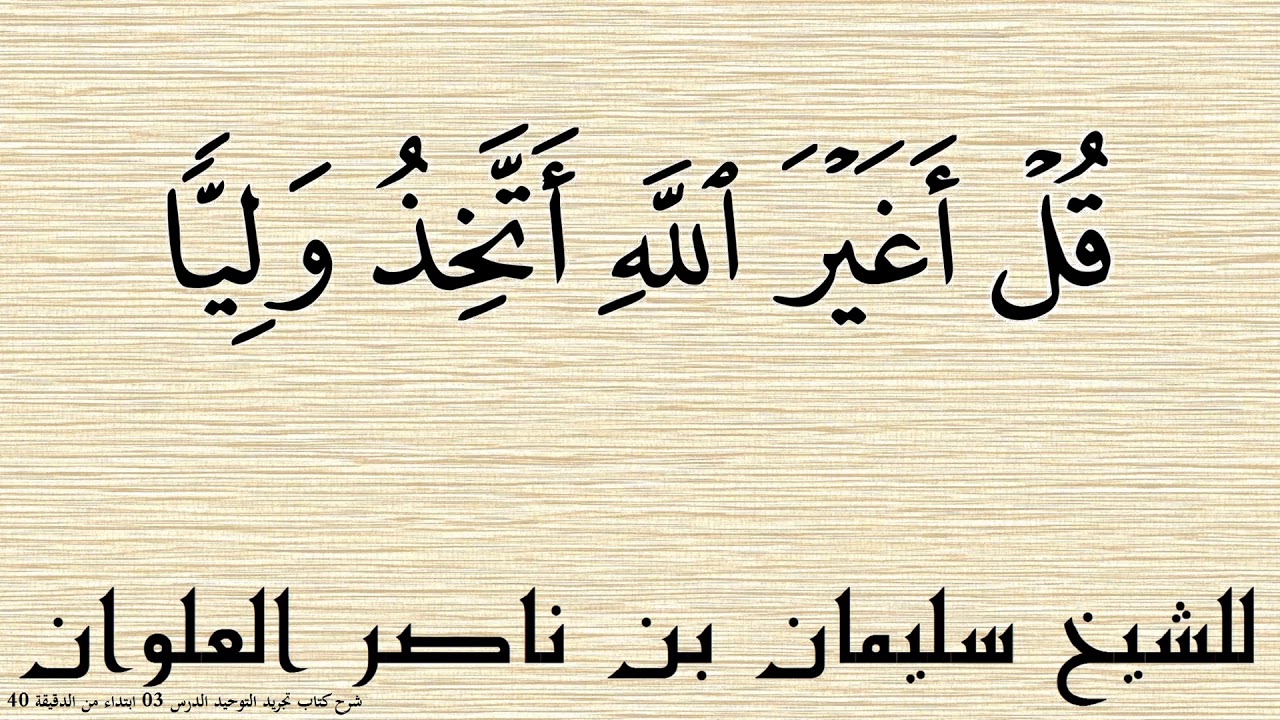 قُلۡ أَغَيۡرَ ٱللَّهِ أَتَّخِذُ وَلِيَّٗا
للشيخ سليمان بن ناصر العلوان
شرح كتاب تجريد التوحيد الدرس 03 ابتداء من الدقيقة 40